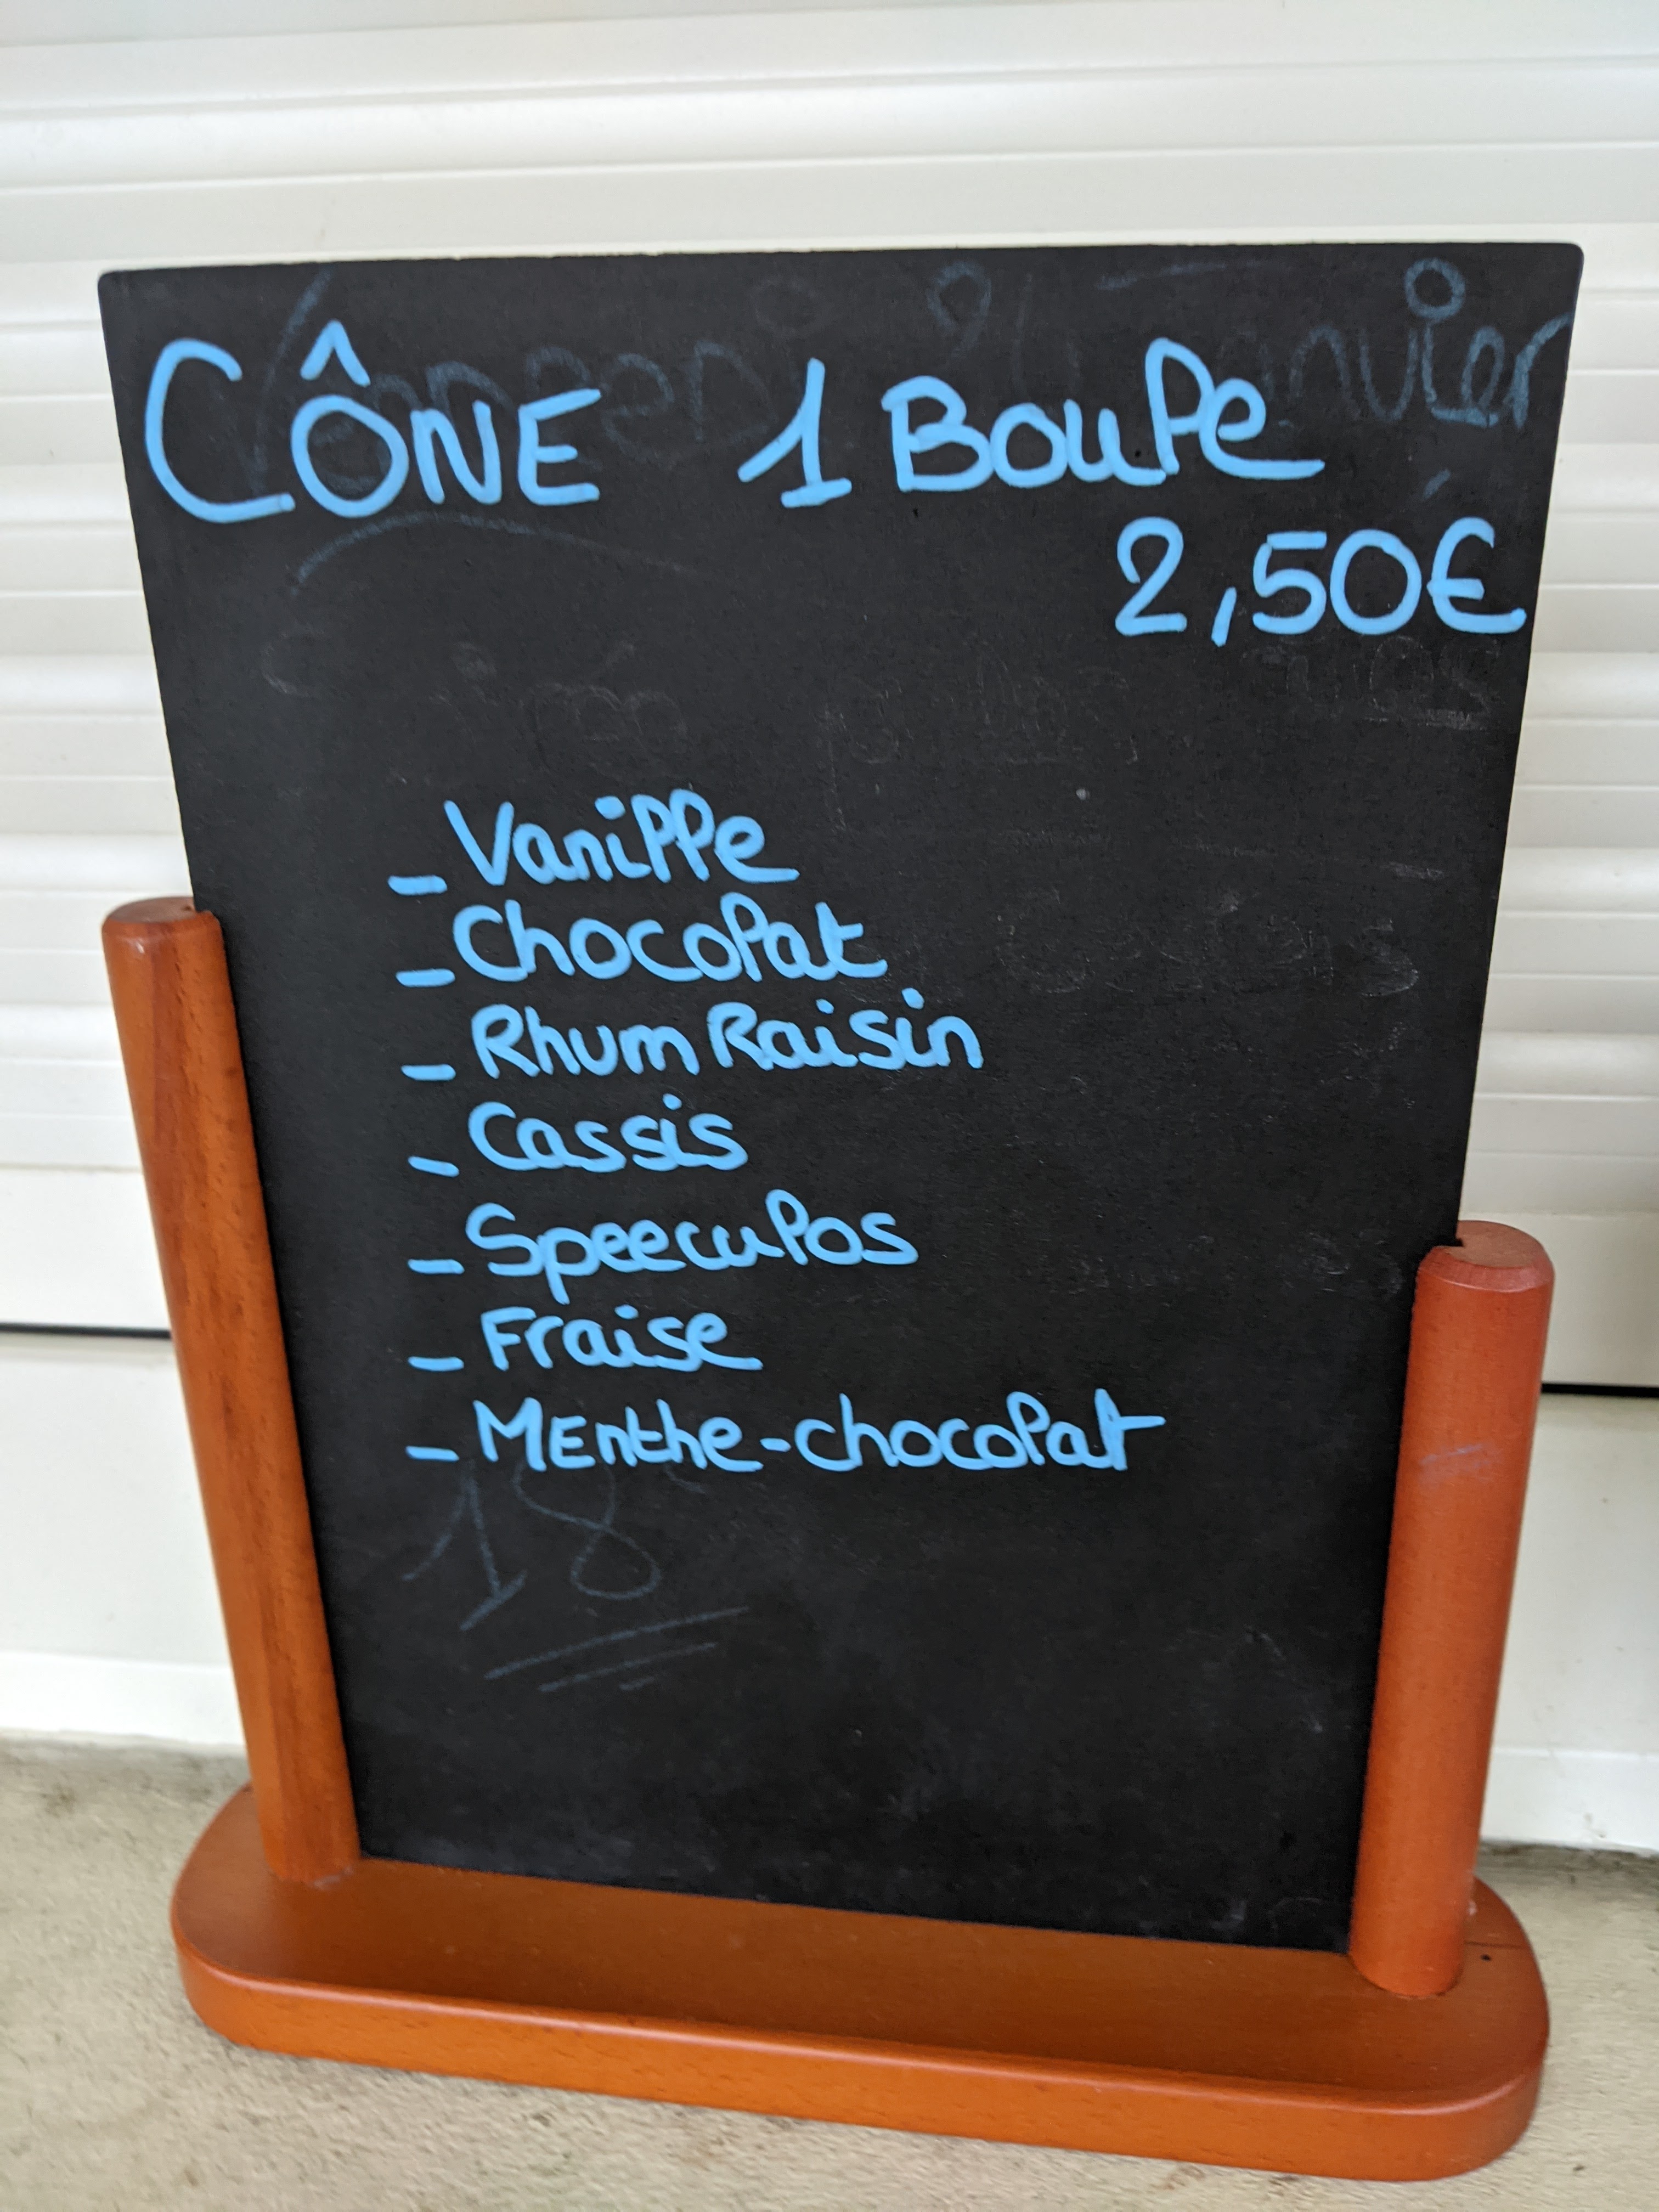 CÔNE 1 Boule
2,50€
- Vanille
- Chocolat
- Rhum Raisin
- Cassis
- Speeculos
- Fraise
- Menthe-chocolat
18